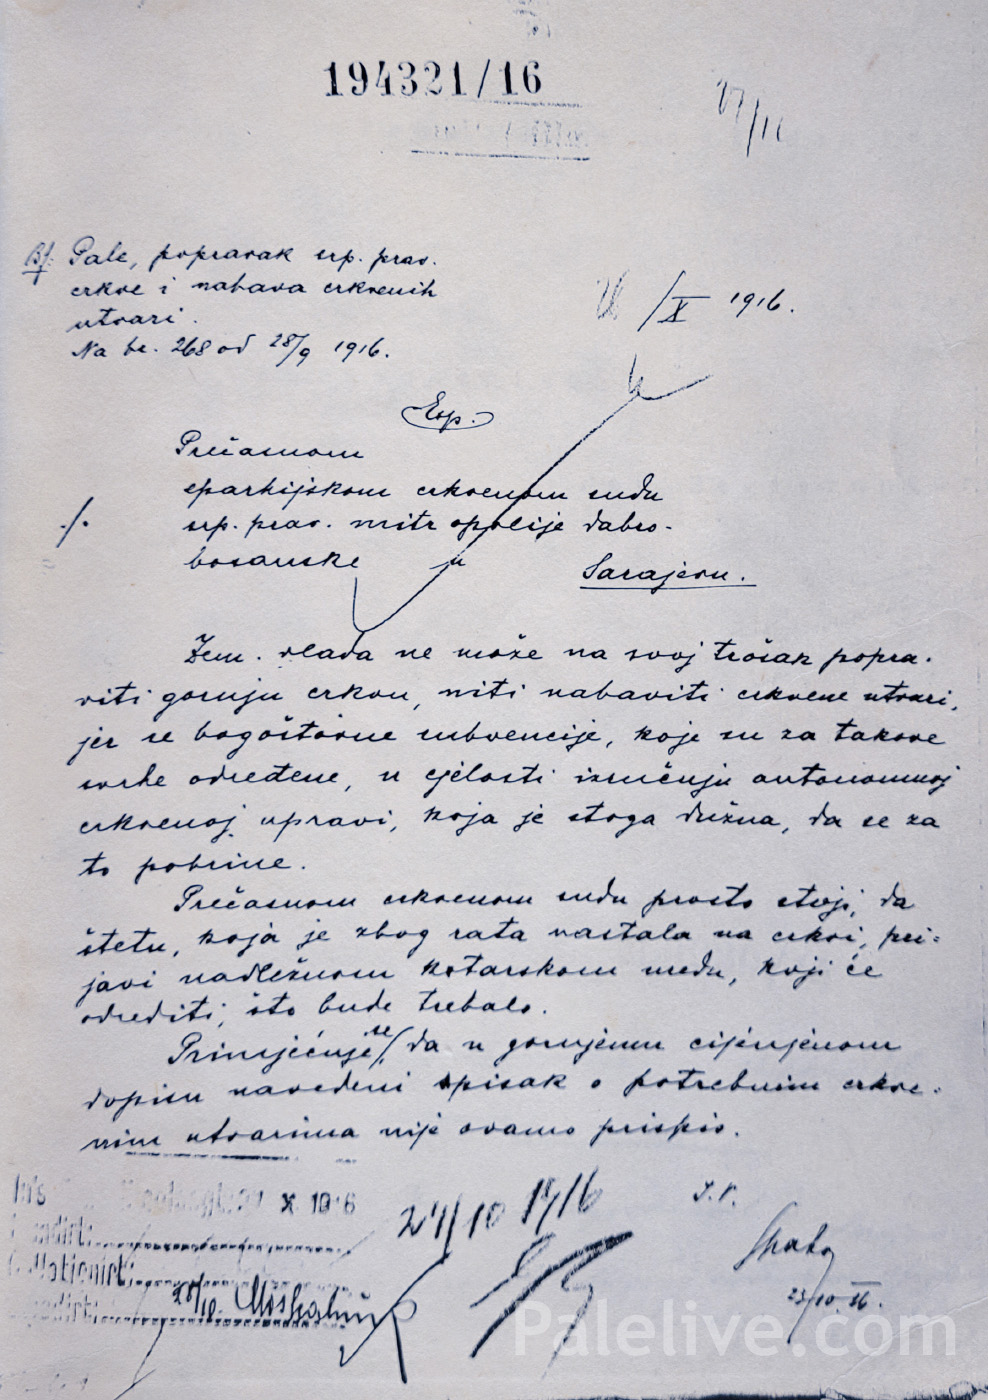 194321/16
Pale, popravak srp. prav.
crkve i nabava crkvenih
utvari.
Na br. 268 od 28/9 1916.
/X 1916.
Exp.
Prečasnom
eparhijskom crkvenom sudu
·/· srp. prav. mitropolije dabro-
bosanske u
Sarajevu.
Zem. vlada ne može na svoj trošak popra-
viti gornju crkvu, niti nabaviti crkvene utvari,
jer se bogoštovne subvencije, koje su za takove
svrhe određene, u cjelosti izručuju autonomnoj
crkvenoj upravi, koja je stoga dužna, da se za
to pobrine.
Prečasnom crkvenom sudu prosto stoji, da
štetu, koja je zbog rata nastala na crkvi, pri-
javi nadležnom kotarskom uredu, koji će
odrediti, što bude trebalo.
Primjećuje se, da u gornjemu cijenjenom
dopisu navedeni spisak o potrebnim crkve-
nim utvarima nije ovamo prispio.
X 1916
24/10 1916
23/10 16.
Palelive.com